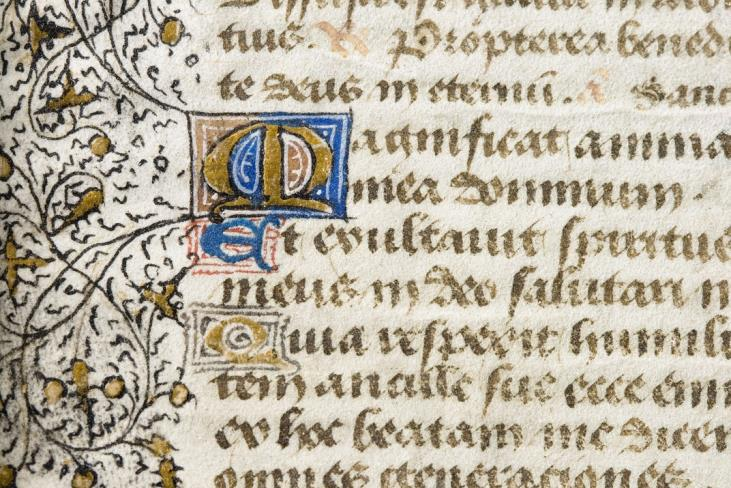 tuis. Propterea bened
te deus in eternũ. Sanc
Magnificat anima
mea dominum.
Et exultauit spiritus
meus in deo salutari m
Quia respexit humili
tem ancille sue ecce enim
ex hoc beatam me dicen
omnes generaciones